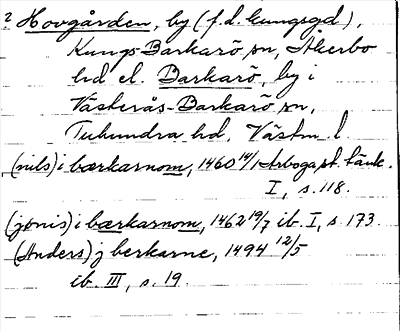 2 Hovgården, by (f.d. kungsgd),
Kungs-Barkarö sn, Åkerbo
hd el. Barkarö, by i
Västerås-Barkarö sn,
Tuhundra hd, Västm l
(nils) i bærkarnom, 1460 14/1 Arboga st. tänk.
I, s. 118.
(jönis) i bærkarnom, 1462 19/7 ib. I, s. 173.
(Anders) j berkarne, 1494 12/5
ib. III, s. 19.